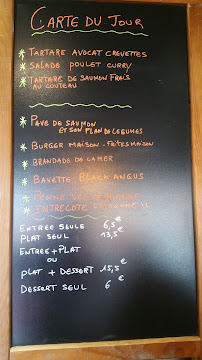 CARTE DU JOUR
* TARTARE AVOCAT CREVETTES
* SALADE POULET CURRY
* TARTARE DE SAUMON FRAIS
AU COUTEAU
* PAVE DE SAUMON
ET SON PLAN DE LEGUMES
* BURGER MAISON - FRITES MAISON
* BRANDADE DE LA MER
* BAVETTE BLACK ANGUS
* PENNE
* ENTRECOTE
ENTREE SEULE 6,5€
PLAT SEUL 13,5€
ENTREE + PLAT
OU
PLAT + DESSERT 15,5€
DESSERT SEUL 6€